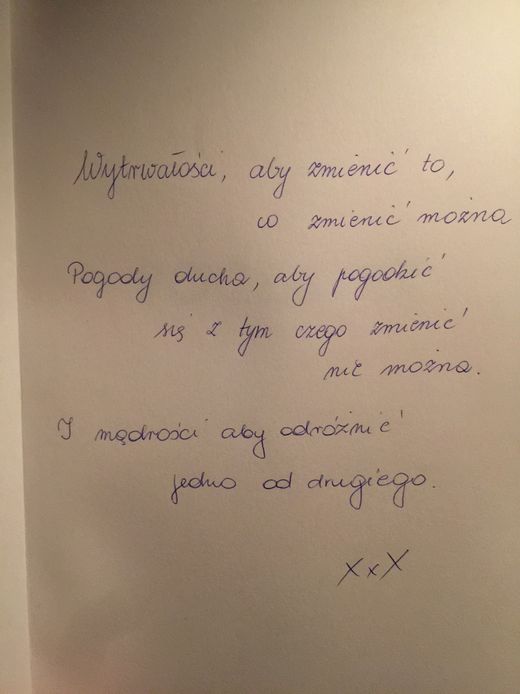 Wytrwałości, aby zmienić to,
co zmienić można
Pogody ducha, aby pogodzić
się z tym czego zmienić
nie można.
I mądrości aby odróżnić
jedno od drugiego.
XxX